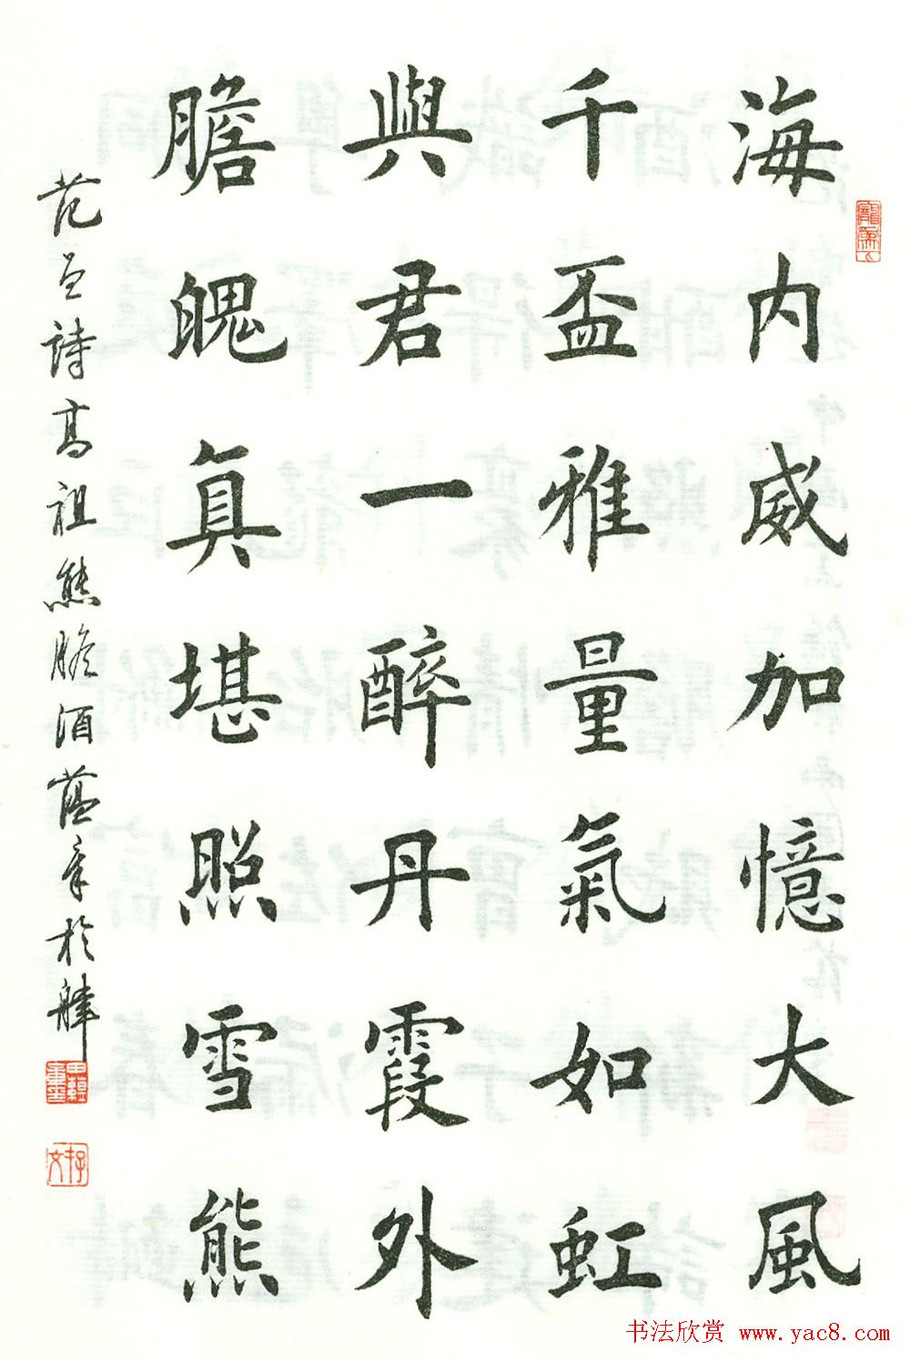 海内威加憶大風
千盃雅量氣如虹
與君一醉丹霞外
膽魄真堪照雪熊
范曾詩高祖熊膽酒蘊章於津
书法欣赏 www.yac8.com